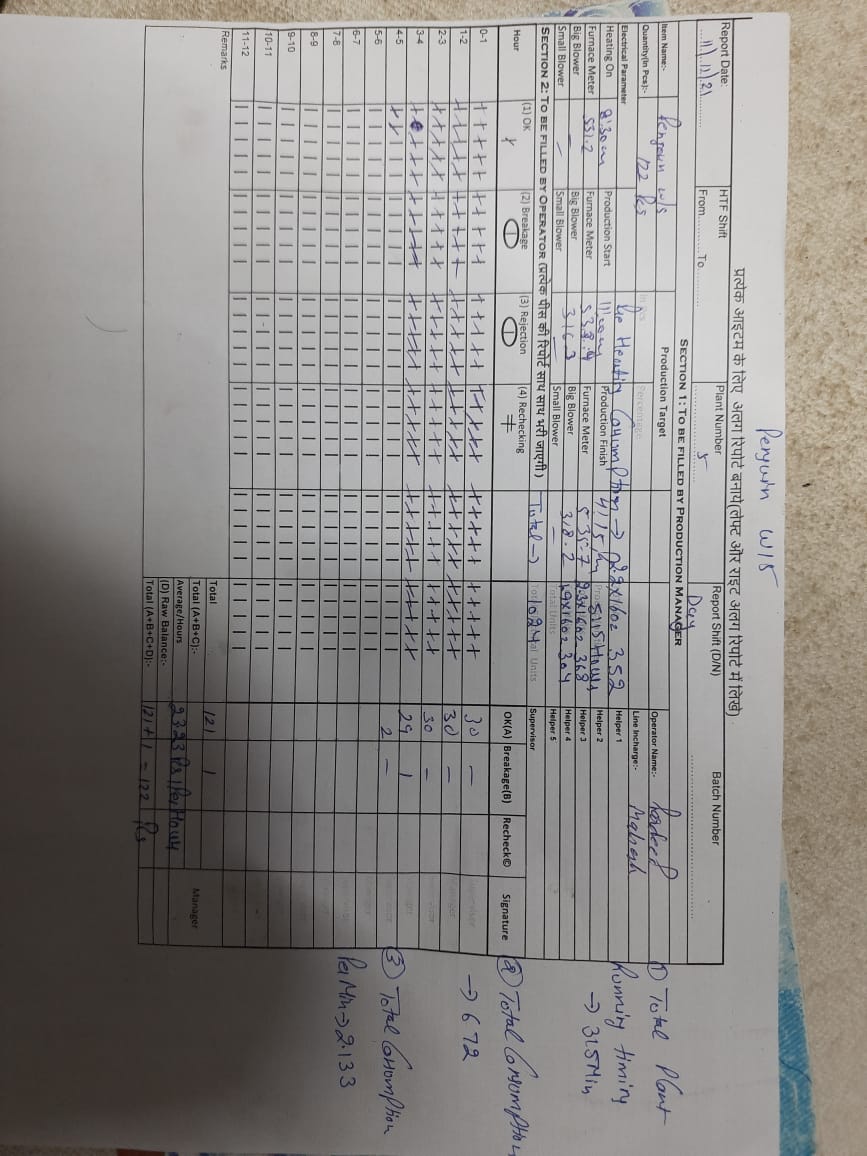 Penguin W/S
प्रत्येक आइटम के लिए अलग रिपोर्ट बनाये(लेफ्ट और राइट अलग रिपोर्ट में लिखे)
Report Date: 11/11/21 HTF Shift From..........To.......... Plant Number 5 Report Shift (D/N) Day Batch Number
SECTION 1: TO BE FILLED BY PRODUCTION MANAGER
Item Name:- Penguin w/s Production Target Operator Name:- Pardeep
Quantity(In Pcs):- 122 Pcs In Pcs Percentage Line Incharge:- Mahesh
Electrical Parameter Pre Heating Consumption → 2.2x160= 352 Helper 1
Heating On 8:30am Production Start 11:00am Production Finish 4:15 Pm 5:15 Hours Helper 2
Furnace Meter 531.2 Furnace Meter 533.4 Furnace Meter 535.7 2.3x160= 368 Helper 3
Big Blower — Big Blower 316.3 Big Blower 318.2 1.9x160= 304 Helper 4
Small Blower — Small Blower — Small Blower — Total Units Helper 5
SECTION 2: TO BE FILLED BY OPERATOR (प्रत्येक पीस की रिपोर्ट साथ साथ भरी जाएगी) Total → 1024 Units Supervisor
Hour (1) OK (2) Breakage (3) Rejection (4) Rechecking OK(A) Breakage(B) Recheck© Signature
0-1 30 —
1-2 30 —
2-3 30 —
3-4 29 1
4-5 2 —
5-6
6-7
7-8
8-9
9-10
10-11
11-12
Remarks
Total 121 1
Total (A+B+C):- Manager
Average/Hours 23.23 Ps / Per Hour
(D) Raw Balance:-
Total (A+B+C+D):- 121 + 1 = 122 Ps
① Total Plant
Running timing
→ 315 Min
② Total Consumption
→ 672
③ Total Consumption
Per Min → 2.133